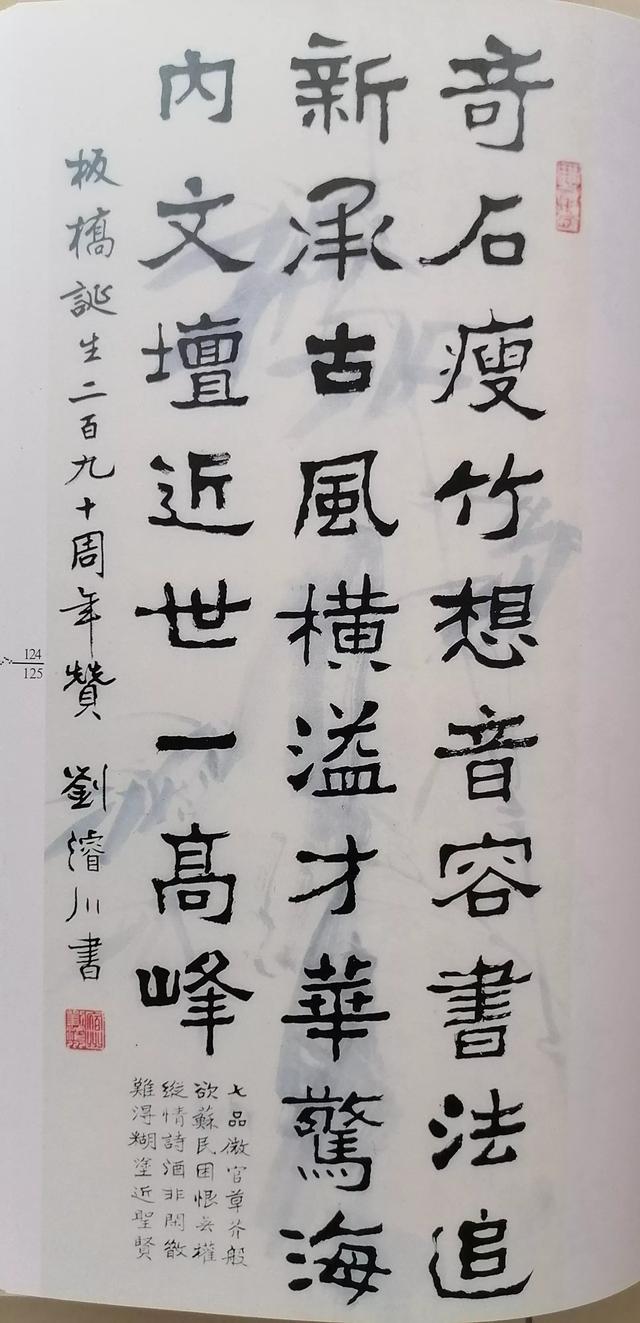 奇石瘦竹想音容書法追
新承古風橫溢才華驚海
內文壇近世一高峰
七品微官草芥般
欲蘇民困恨無權
縱情詩酒非閒散
難得糊塗近聖賢
板橋誕生二百九十周年贊 劉濬川書
124
125